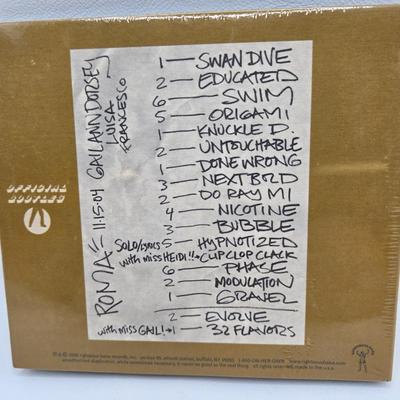 ROMA = 11·15·04 GAIL ANN DORSEY
LUISA
FRANCESCO
OFFICIAL
BOOTLEG
1 — SWAN DIVE
2 — EDUCATED
6 — SWIM
5 — ORIGAMI
1 — KNUCKLE D.
2 — UNTOUCHABLE
1 — DONE WRONG
3 — NEXT BOLD
2 — DO RAY MI
4 — NICOTINE
3 — BUBBLE
SOLO/LYRICS 5 — HYPNOTIZED
with miss HEIDI!! → CLIP CLOP CLACK
6 — PHASE
2 — MODULATION
1 — GRAVEL
2 — EVOLVE
with miss GAIL! → 1 — 32 FLAVORS
righteous babe records, inc. po box 95, ellicott station, buffalo, NY 14205 1-800-ON-HER-OWN www.righteousbabe.com
unauthorized duplication, while sometimes necessary, is never as good as the real thing. all rights reserved. made in the u.s.a.